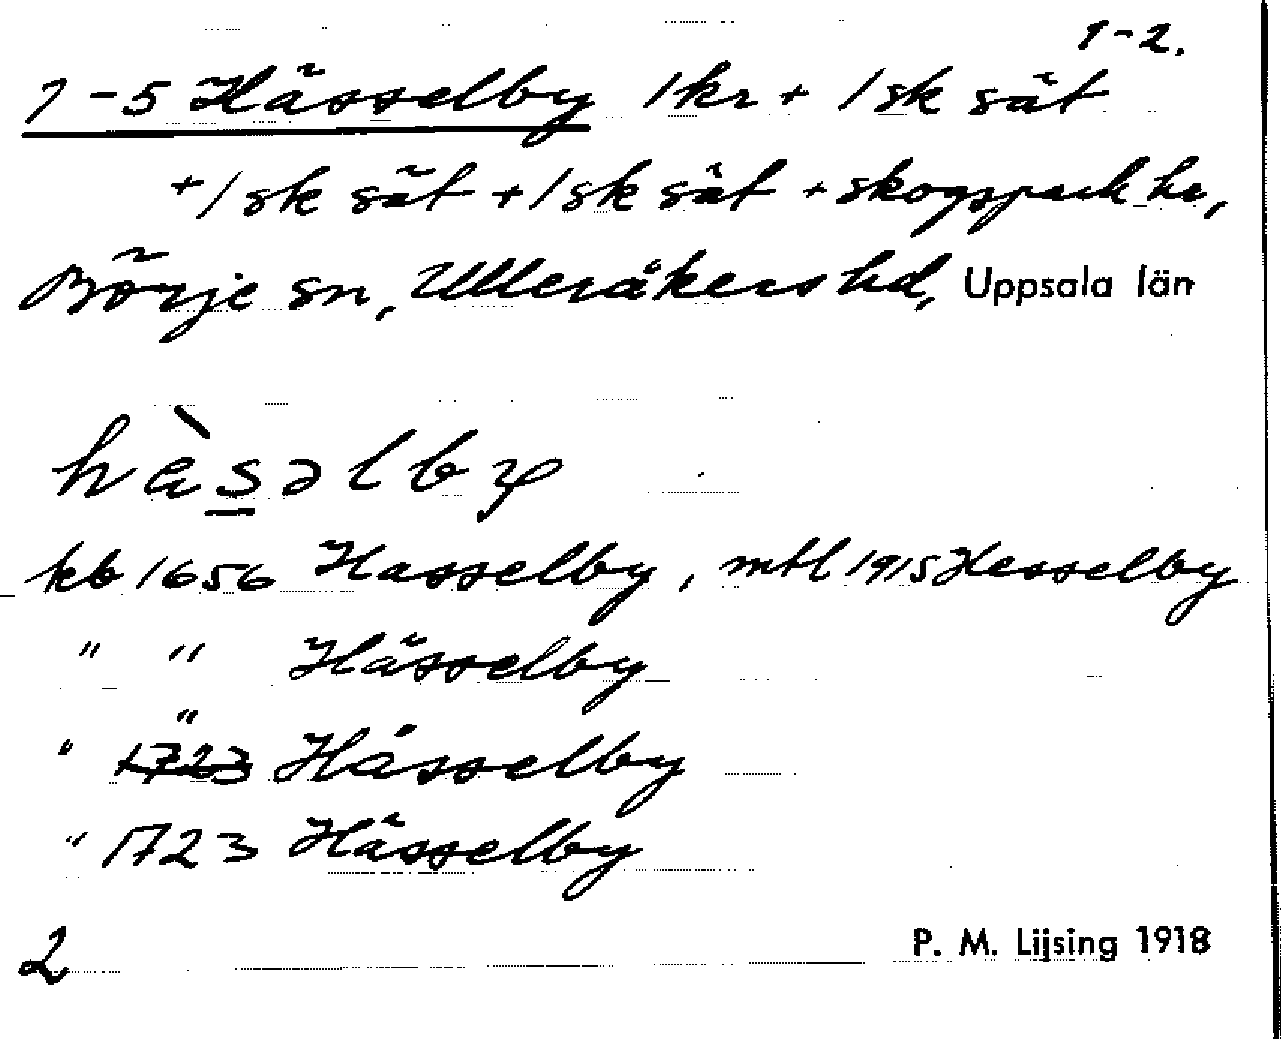 1-2.
1-5 Hässelby 1 kr + 1 sk sät
+ 1 sk sät + 1 sk sät + skogspark hr,
Börje sn, Ulleråkers hd, Uppsala län
hàsəlby
kb 1656 Hasselby, mtl 1915 Hesselby
" " Hässelby
"
" 1723 Håsselby
" 1723 Hässelby
2
P. M. Lijsing 1918